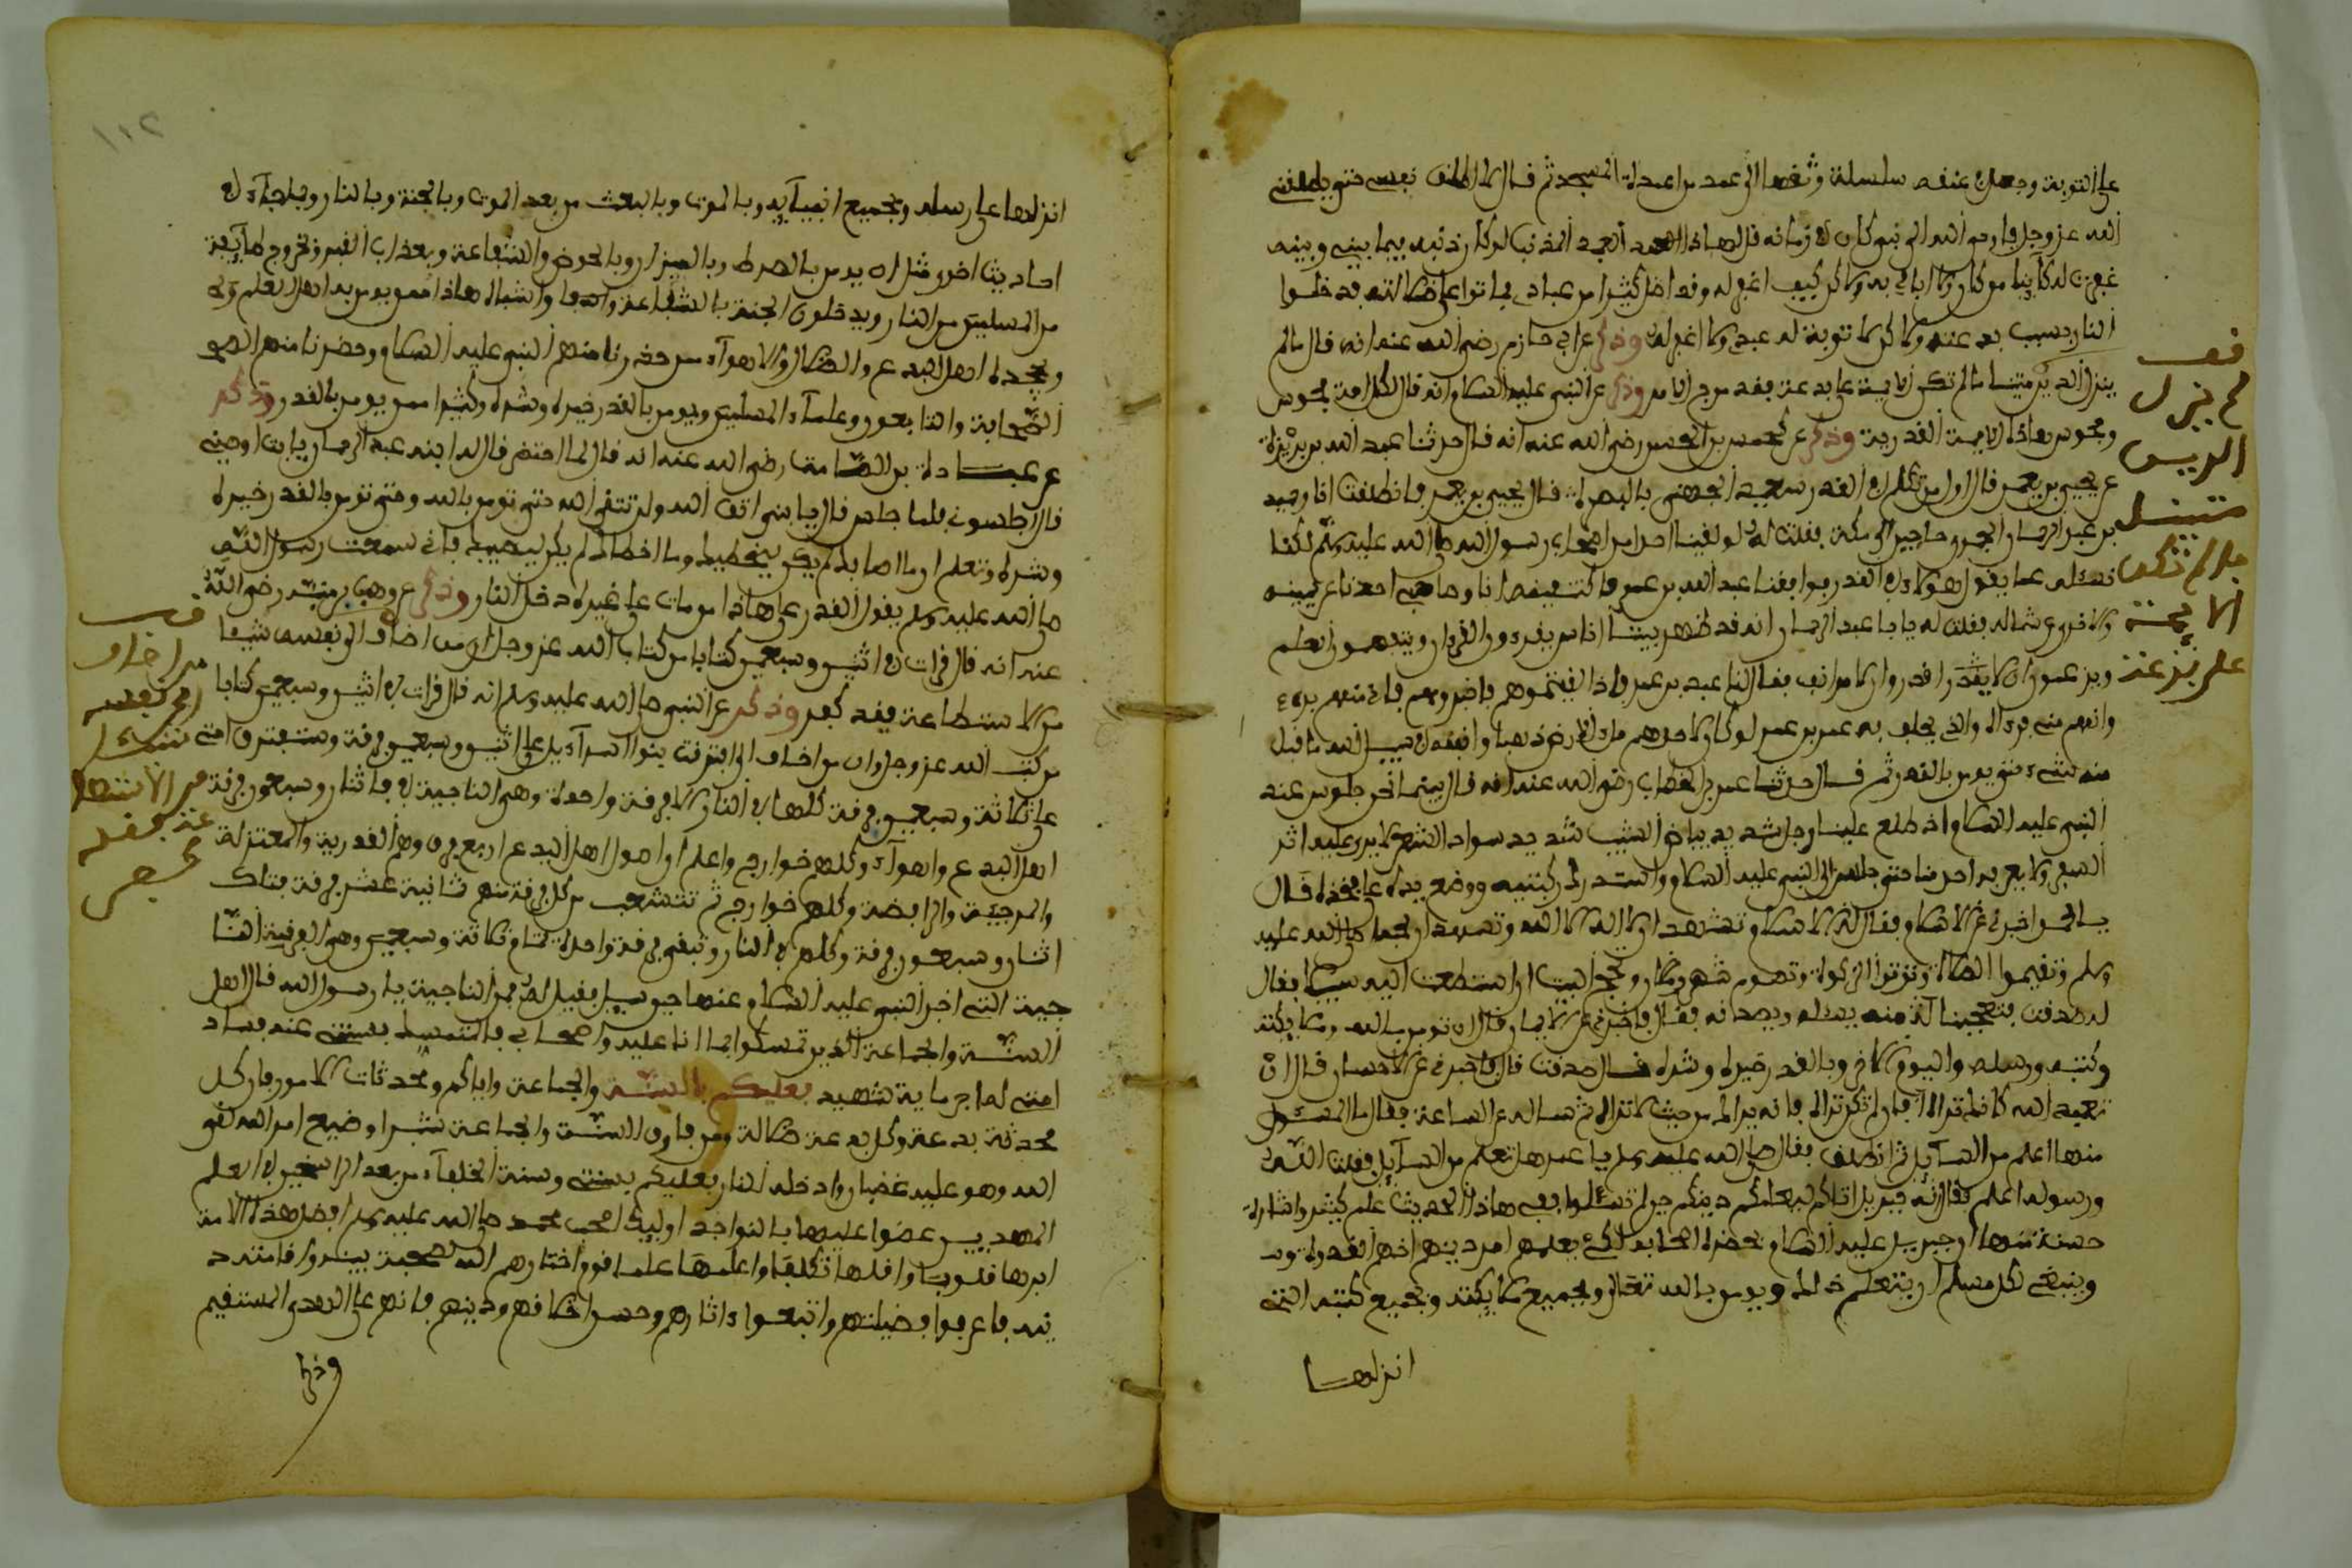 على التوبة وجعل في عنقه سلسلة وثقها الى عمد من اعمدة المسجد ثم قال لا اطلق نفسي حتى
الله عز وجل فاوحى الله الى نبي كان في زمانه قل لهاذا العبد المذنب لو كان ذنبه فيما بيني وبينه
غفرت له كاينا من كان ولاكن كيف اغفر له وقد اضل كثيرا من عبادي فماتوا على ضلالته فدخلوا
النار بسبب بدعته ولاكن لا توبة له عندي ولا اغفر له وذكر عن ابي حازم رضي الله عنه انه قال لم
ينزل الدين متينا ما لم تكن لاية على بدعة فقد مرج الامر وذكر عن النبي عليه السلام انه قال لكل امة مجوس
ومجوس هاذه الامة القدرية وذكر عن كهمس بن الحسن رضي الله عنه انه قال حدثنا عبد الله بن بريدة
عن يحيى بن يعمر قال اول من تكلم في القدر معبد الجهني بالبصرة قال يحيى بن يعمر فانطلقت انا وحميد
بن عبد الرحمان الحميري حاجين الى مكة فقلت له لو لقينا احدا من اصحاب رسول الله صلى الله عليه وسلم لكنا
نسئله عما يقول هؤلاء في القدر فوافقنا عبد الله بن عمر فاكتنفته انا وصاحبي احدنا عن يمينه
والاخر عن شماله فقلت له يا ابا عبد الرحمان انه قد ظهر بيننا اناس يقرءون القرءان ويتبعون العلم
ويزعمون ان لا يقدر اقدر وان الامر انف فقال لنا عبد بن عمر فاذا لقيتموهم فاخبروهم باني منهم برىء
وانهم مني برءاء والذي يحلف به عمر بن عمر لو كان لاحدهم ملء الارض ذهبا وانفقه في سبيل الله ما قبل
منه شيء حتى يومن بالقدر ثم قال حدثنا عمر بن الخطاب رضي الله عنه انه قال بينما نحن جلوس عند
النبي عليه السلام اذ طلع علينا رجل شديد بياض الثيب شديد سواد الشعر لا يرى عليه اثر
السفر ولا يعرفه احد منا حتى جلس الى النبي عليه السلام واسند ركبتيه ووضع يده على فخذه قال
يا محمد اخبرني عن الاسلام فقال له الاسلام تشهد ان لا اله الا الله وتشهد ان محمدا صلى الله عليه
وسلم وتقيموا الصلاة وتؤتوا الزكوة وتصوم شهر رمضان وتحج البيت ان استطعت اليه سبيلا فقال
له صدقت فتعجبنا له منه يسئله ويصدقه فقال فاخبرني عن الايمان قال ان تومن بالله وملايكته
وكتبه ورسله واليوم الاخر وبالقدر خيره وشره قال صدقت قال فاخبرني عن الاحسان قال ان
تعبد الله كانك تراه فان لم تكن تراه فانه يراك من حيث لا تراه ثم ساله عن الساعة فقال ما المسئول
منها اعلم من السآيل ثم انطلق فقال صلى الله عليه وسلم يا عمر ها تعلم من السآيل فقلت الله
ورسوله اعلم فقال له جبريل اتاكم ليعلمكم دينكم حين لم تسئلوا ففي هاذا الحديث علم كثير واشارة
حسنة منها ان جبريل عليه السلام
وينبغي لكل مسلم ان يتعلم ذلك ويومن بالله تعالى وبجميع ملايكته وبجميع كتبه التي
انزلها
قف
لم ينزل
الدين
متينا
ما لم تكن
الاية
على بدعة
١١٢
انزلها على رسله وبجميع انبيآيه وبالموت وبالبعث من بعد الموت وبالجنة وبالنار وبما جآء في
احاديث اخرى مثل ان يومن بالصراط وبالميزان وبالحوض والشفاعة وبعذاب القبر وخروج طآيفة
من المسلمين من النار ويدخلون الجنة بالشفاعة وامثال هاذا فهو يومن به اهل العلم
اهل البدع والضلال والاهوآء
الصحابة والتابعون وعلمآء المسلمين ويومن بالقدر خيره وشره وكثير ممن يومن بالقدر وذكر
عن عبادة بن الصامت رضي الله عنه انه قال لما احتضر قال له ابنه عبد الرحمان يا ابت اوصني
قال اجلسوني فلما جلس قال يا بني اتق الله ولن تتقي الله حتى تومن بالله وحتى تومن بالقدر خيره
وشره وتعلم ان ما اصابك لم يكن ليخطيك وما اخطاك لم يكن ليصيبك فاني سمعت رسول الله
صلى الله عليه وسلم يقول القدر على هاذا من مات على غيره دخل النار وذكر عن وهب بن منبه رضي الله
عنه انه قال قرات في اثنين وسبعين كتابا من كتاب الله عز وجل ان من اضاف الى نفسه شيئا
من الاستطاعة فقد كفر وذكر عن النبي صلى الله عليه وسلم انه قال قرات في اثنين وسبعين كتابا
من كتب الله عز وجل وان من اضاف الى افترقت بنوا اسرآءيل على اثنين وسبعين فرقة وستفترق امتي
على ثلاثة وسبعين فرقة كلها في النار الا فرقة واحدة وهي الناجية فاثنان وسبعون فرقة
اهل البدع واهوآء وكلهم خوارج واعلم ان اصول اهل البدع اربع فرق وهم القدرية والمعتزلة
والمرجية والرافضة وكلهم خوارج ثم تتشعب من كل فرقة منهم ثمانية عشر فرقة فتلك
اثنان وسبعون فرقة وكلهم في النار وتبقى فرقة واحدة تمام ثلاثة وسبعين وهي الفرقة النا
جية التي اخبر النبي عليه السلام عنها حين سيل فقيل له من الناجية يا رسول الله قال اهل
السنة والجماعة الذين تمسكوا بما انا عليه واصحابي فالتمسك بسنتي عند فساد
امتي له اجر ماية شهيد فعليكم بالسنة والجماعة واياكم ومحدثات الامور فان كل
محدثة بدعة وكل بدعة ضلالة ومن فارق السنة والجماعة شبرا وضيع امر الله لقي
الله وهو عليه غضبان وادخله النار فعليكم بسنتي وسنة الخلفآء من بعدي الراسخين في العلم
المهديين عضوا عليها بالنواجد اوليك اصحب محمد صلى الله عليه وسلم افضل هذه الامة
ابرها قلوبا واقلها تكلفا واعلمها علما قوم اختارهم الله لصحبة
فاعرفوا فضيلتهم واتبعوا ءاثارهم وحسن اخلاقهم ودينهم فانهم على الهدى المستقيم
وذكر
قف
من اضاف
الى نفسه
شيئا
من الاستطا
عة فقد
كفر